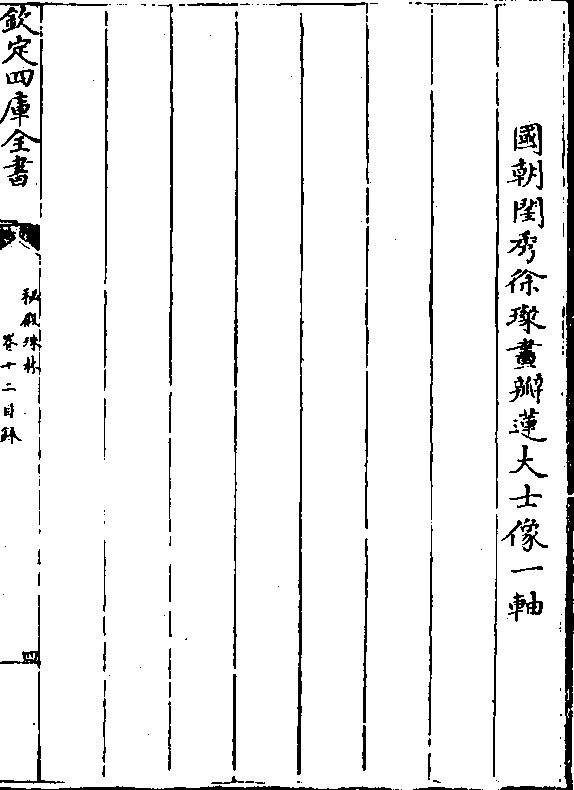 國朝閨秀徐璨畫瓣蓮大士像一軸
欽定四庫全書
秘殿珠林
卷十二目錄
四